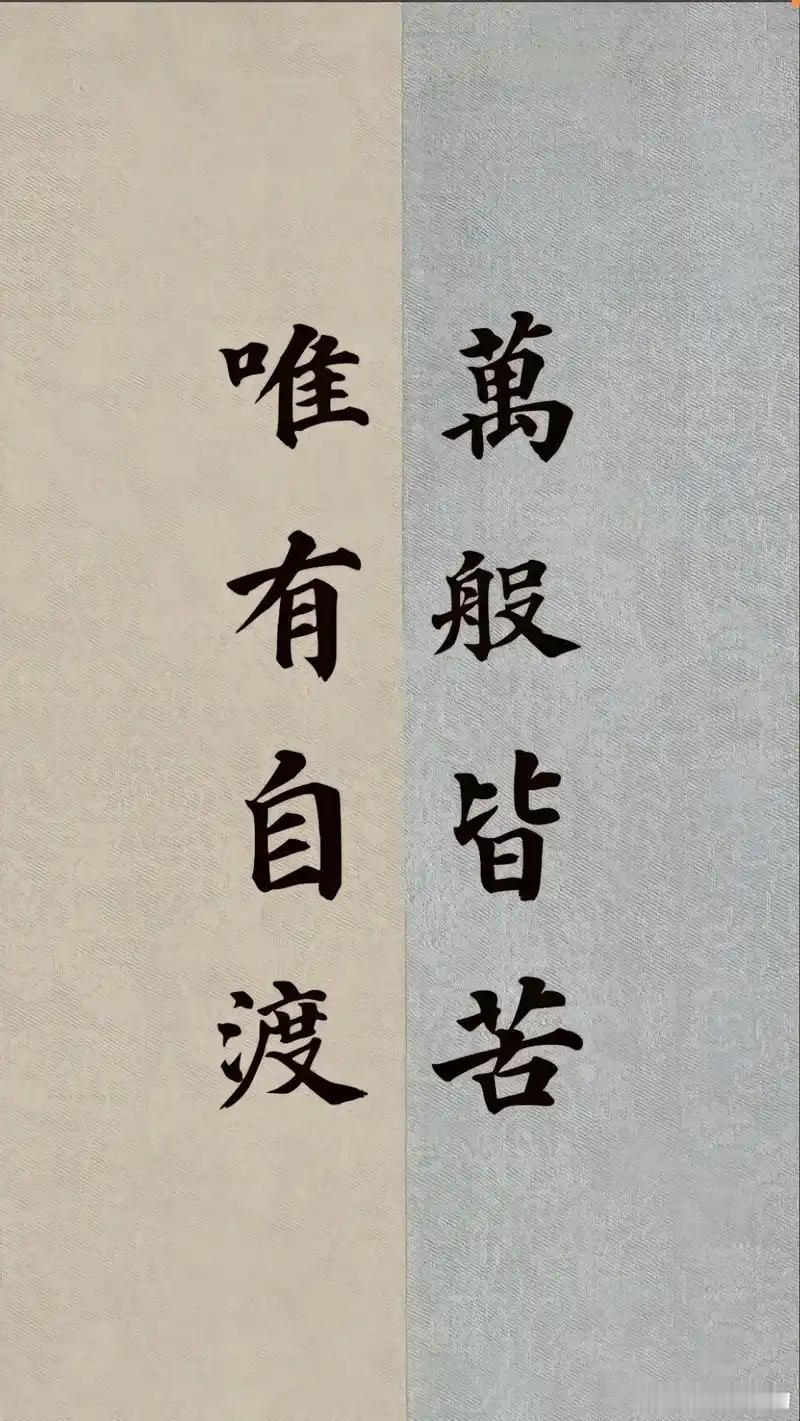 萬般皆苦
唯有自渡